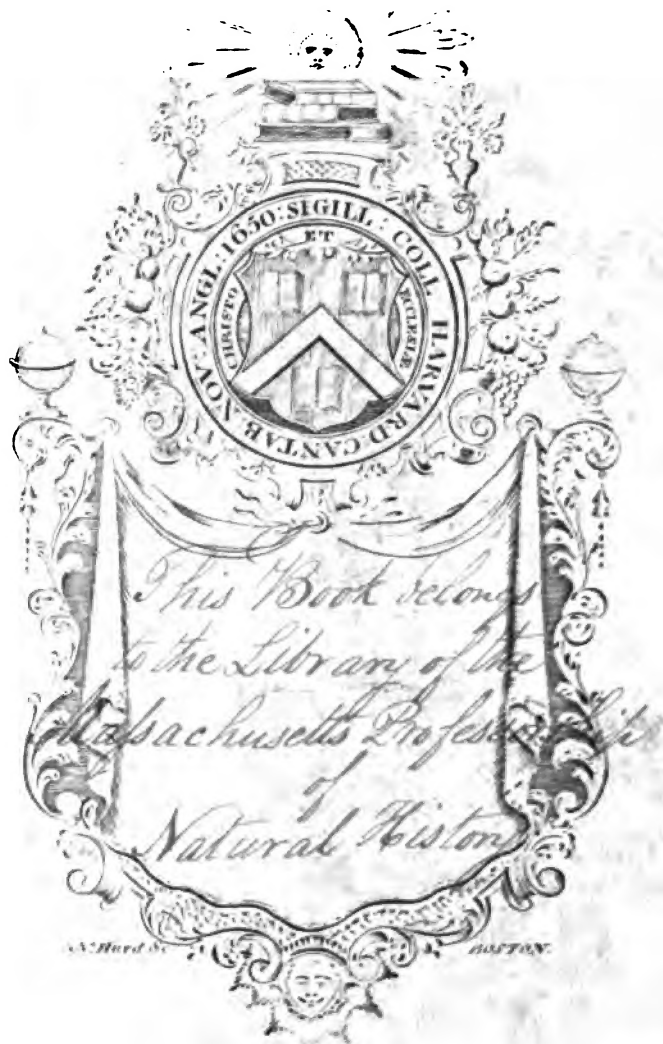 SIGILL: COLL HARVARD·CANTAB·NOV·ANGL:1650:
ET
CHRISTO
ECCLESIÆ
This Book belongs
to the Library of the
Massachusetts Professorship
of
Natural History
N. Hurd Sc
BOSTON.